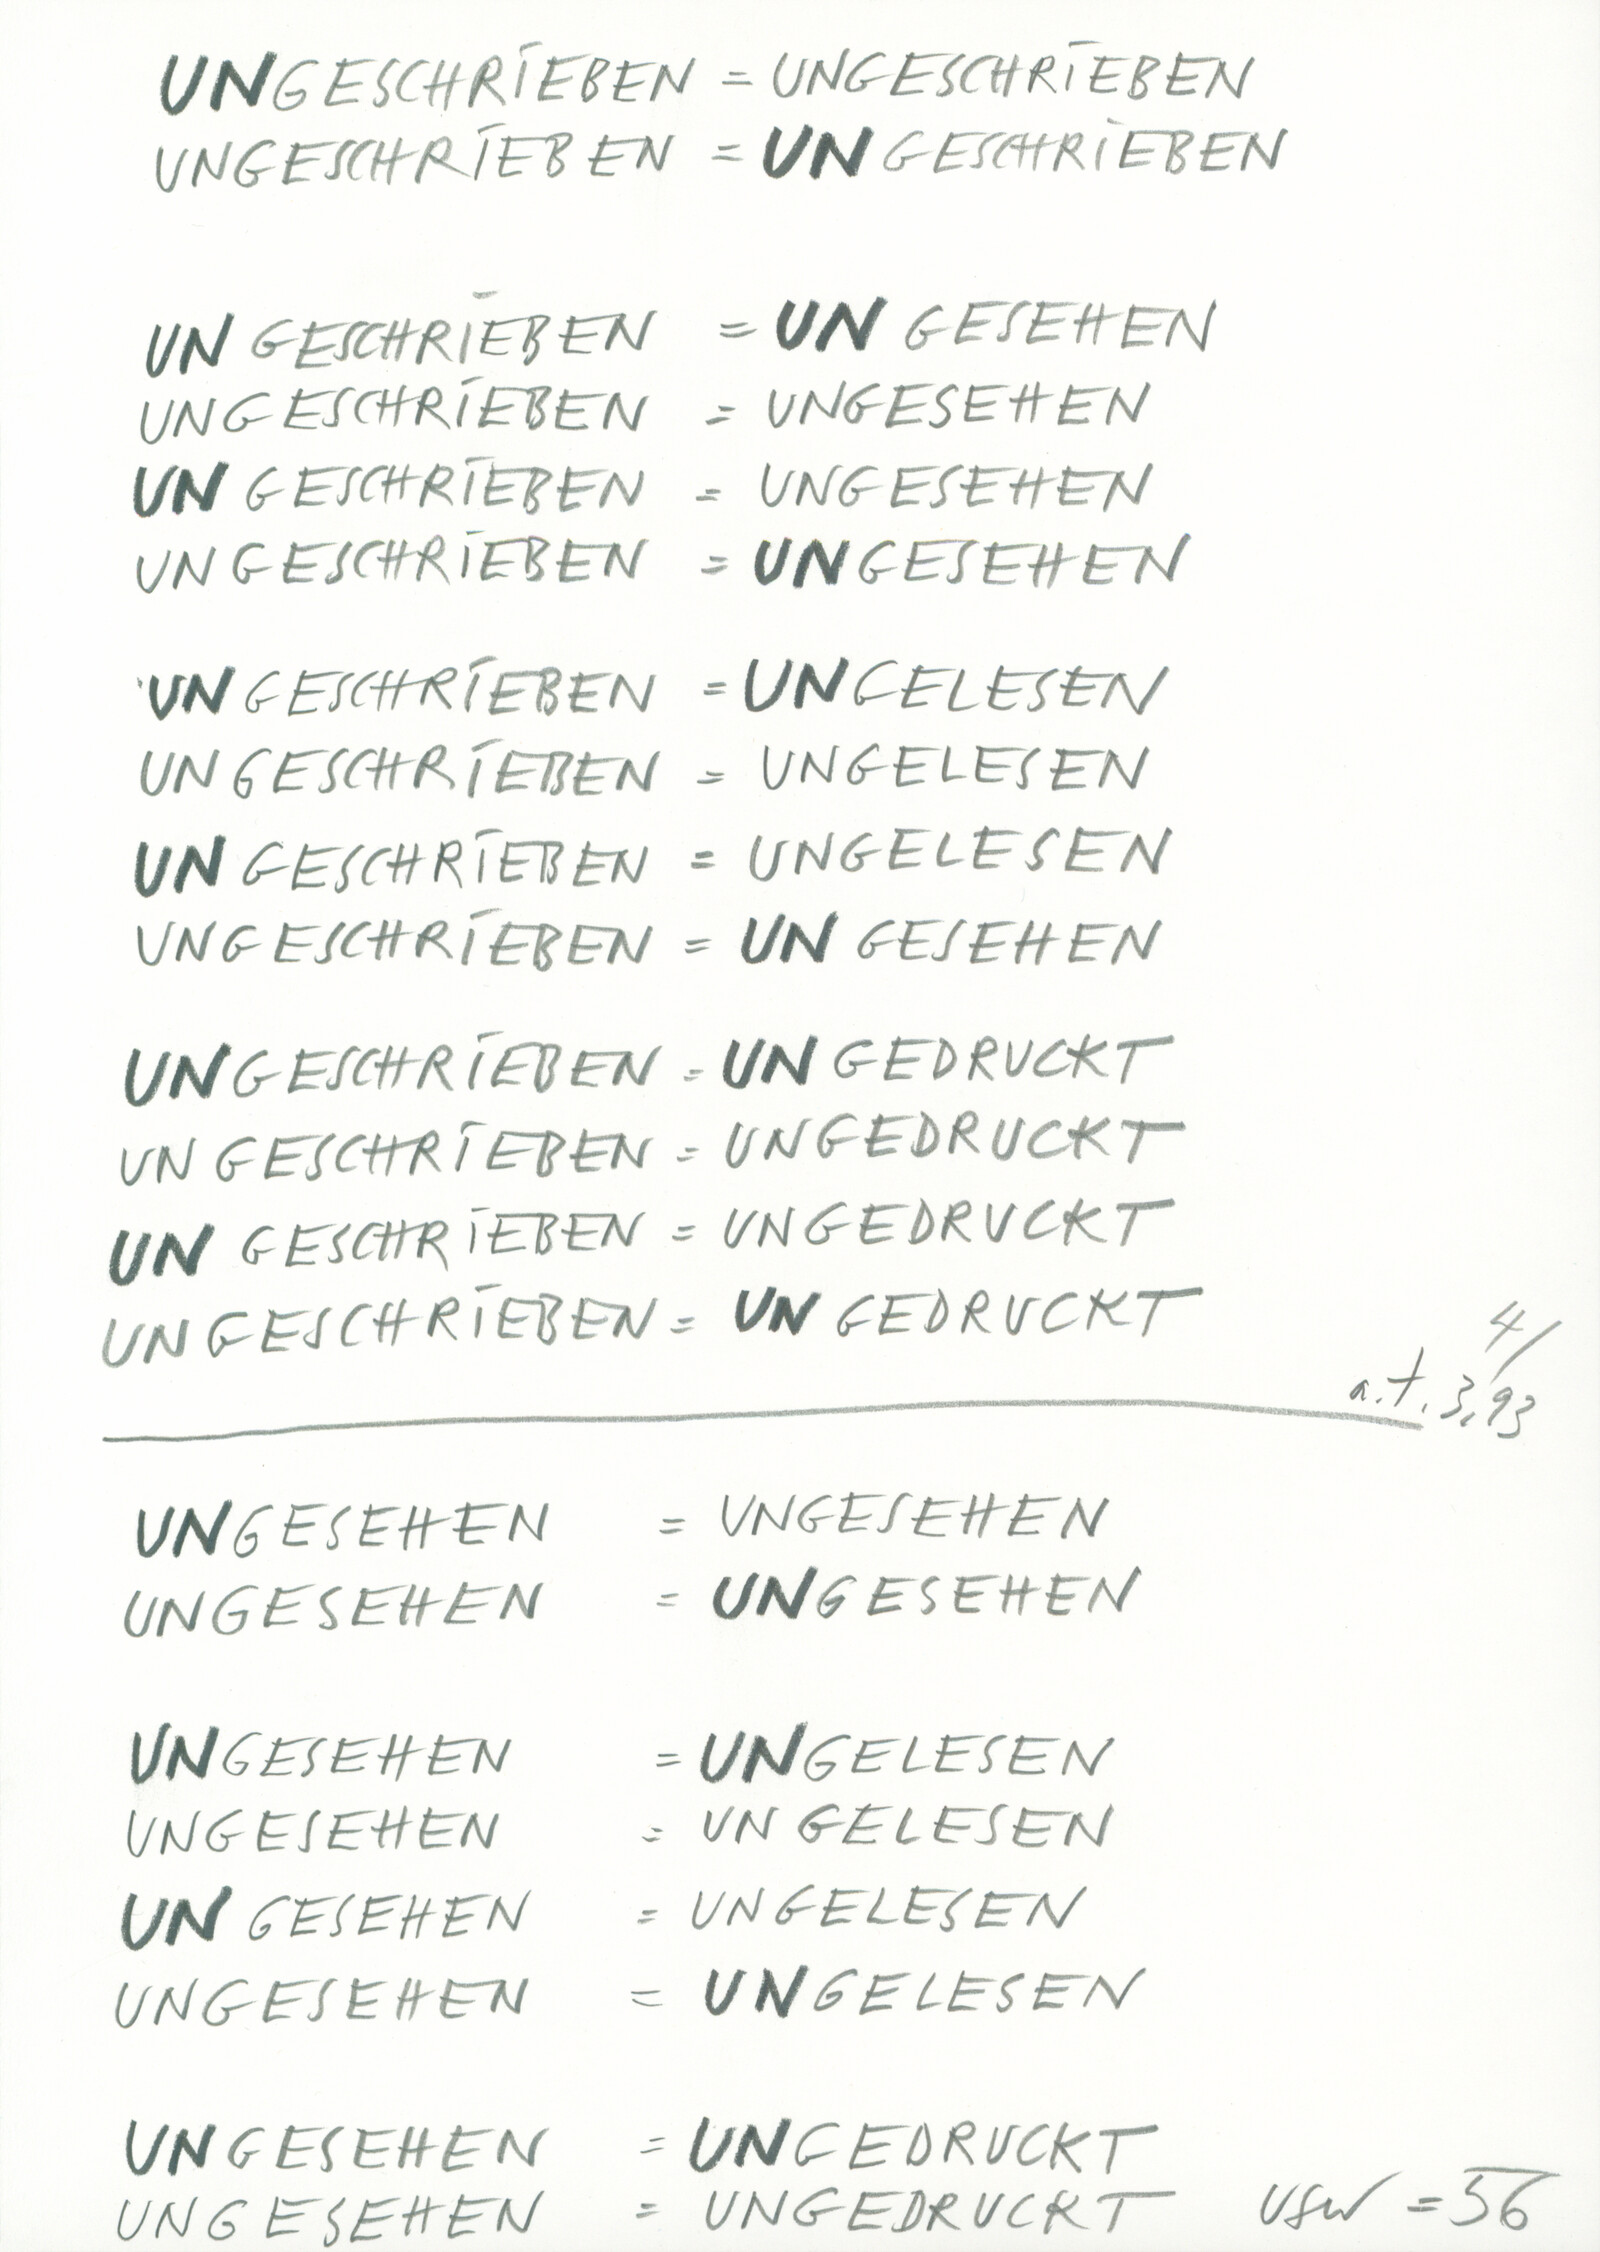 UNGESCHRIEBEN = UNGESCHRIEBEN
UNGESCHRIEBEN = UNGESCHRIEBEN
UNGESCHRIEBEN = UNGESEHEN
UNGESCHRIEBEN = UNGESEHEN
UNGESCHRIEBEN = UNGESEHEN
UNGESCHRIEBEN = UNGESEHEN
UNGESCHRIEBEN = UNGELESEN
UNGESCHRIEBEN = UNGELESEN
UNGESCHRIEBEN = UNGELESEN
UNGESCHRIEBEN = UNGESEHEN
UNGESCHRIEBEN = UNGEDRUCKT
UNGESCHRIEBEN = UNGEDRUCKT
UNGESCHRIEBEN = UNGEDRUCKT
UNGESCHRIEBEN = UNGEDRUCKT
4/
a.t. 3,93
UNGESEHEN = UNGESEHEN
UNGESEHEN = UNGESEHEN
UNGESEHEN = UNGELESEN
UNGESEHEN = UNGELESEN
UNGESEHEN = UNGELESEN
UNGESEHEN = UNGELESEN
UNGESEHEN = UNGEDRUCKT
UNGESEHEN = UNGEDRUCKT usw = 56